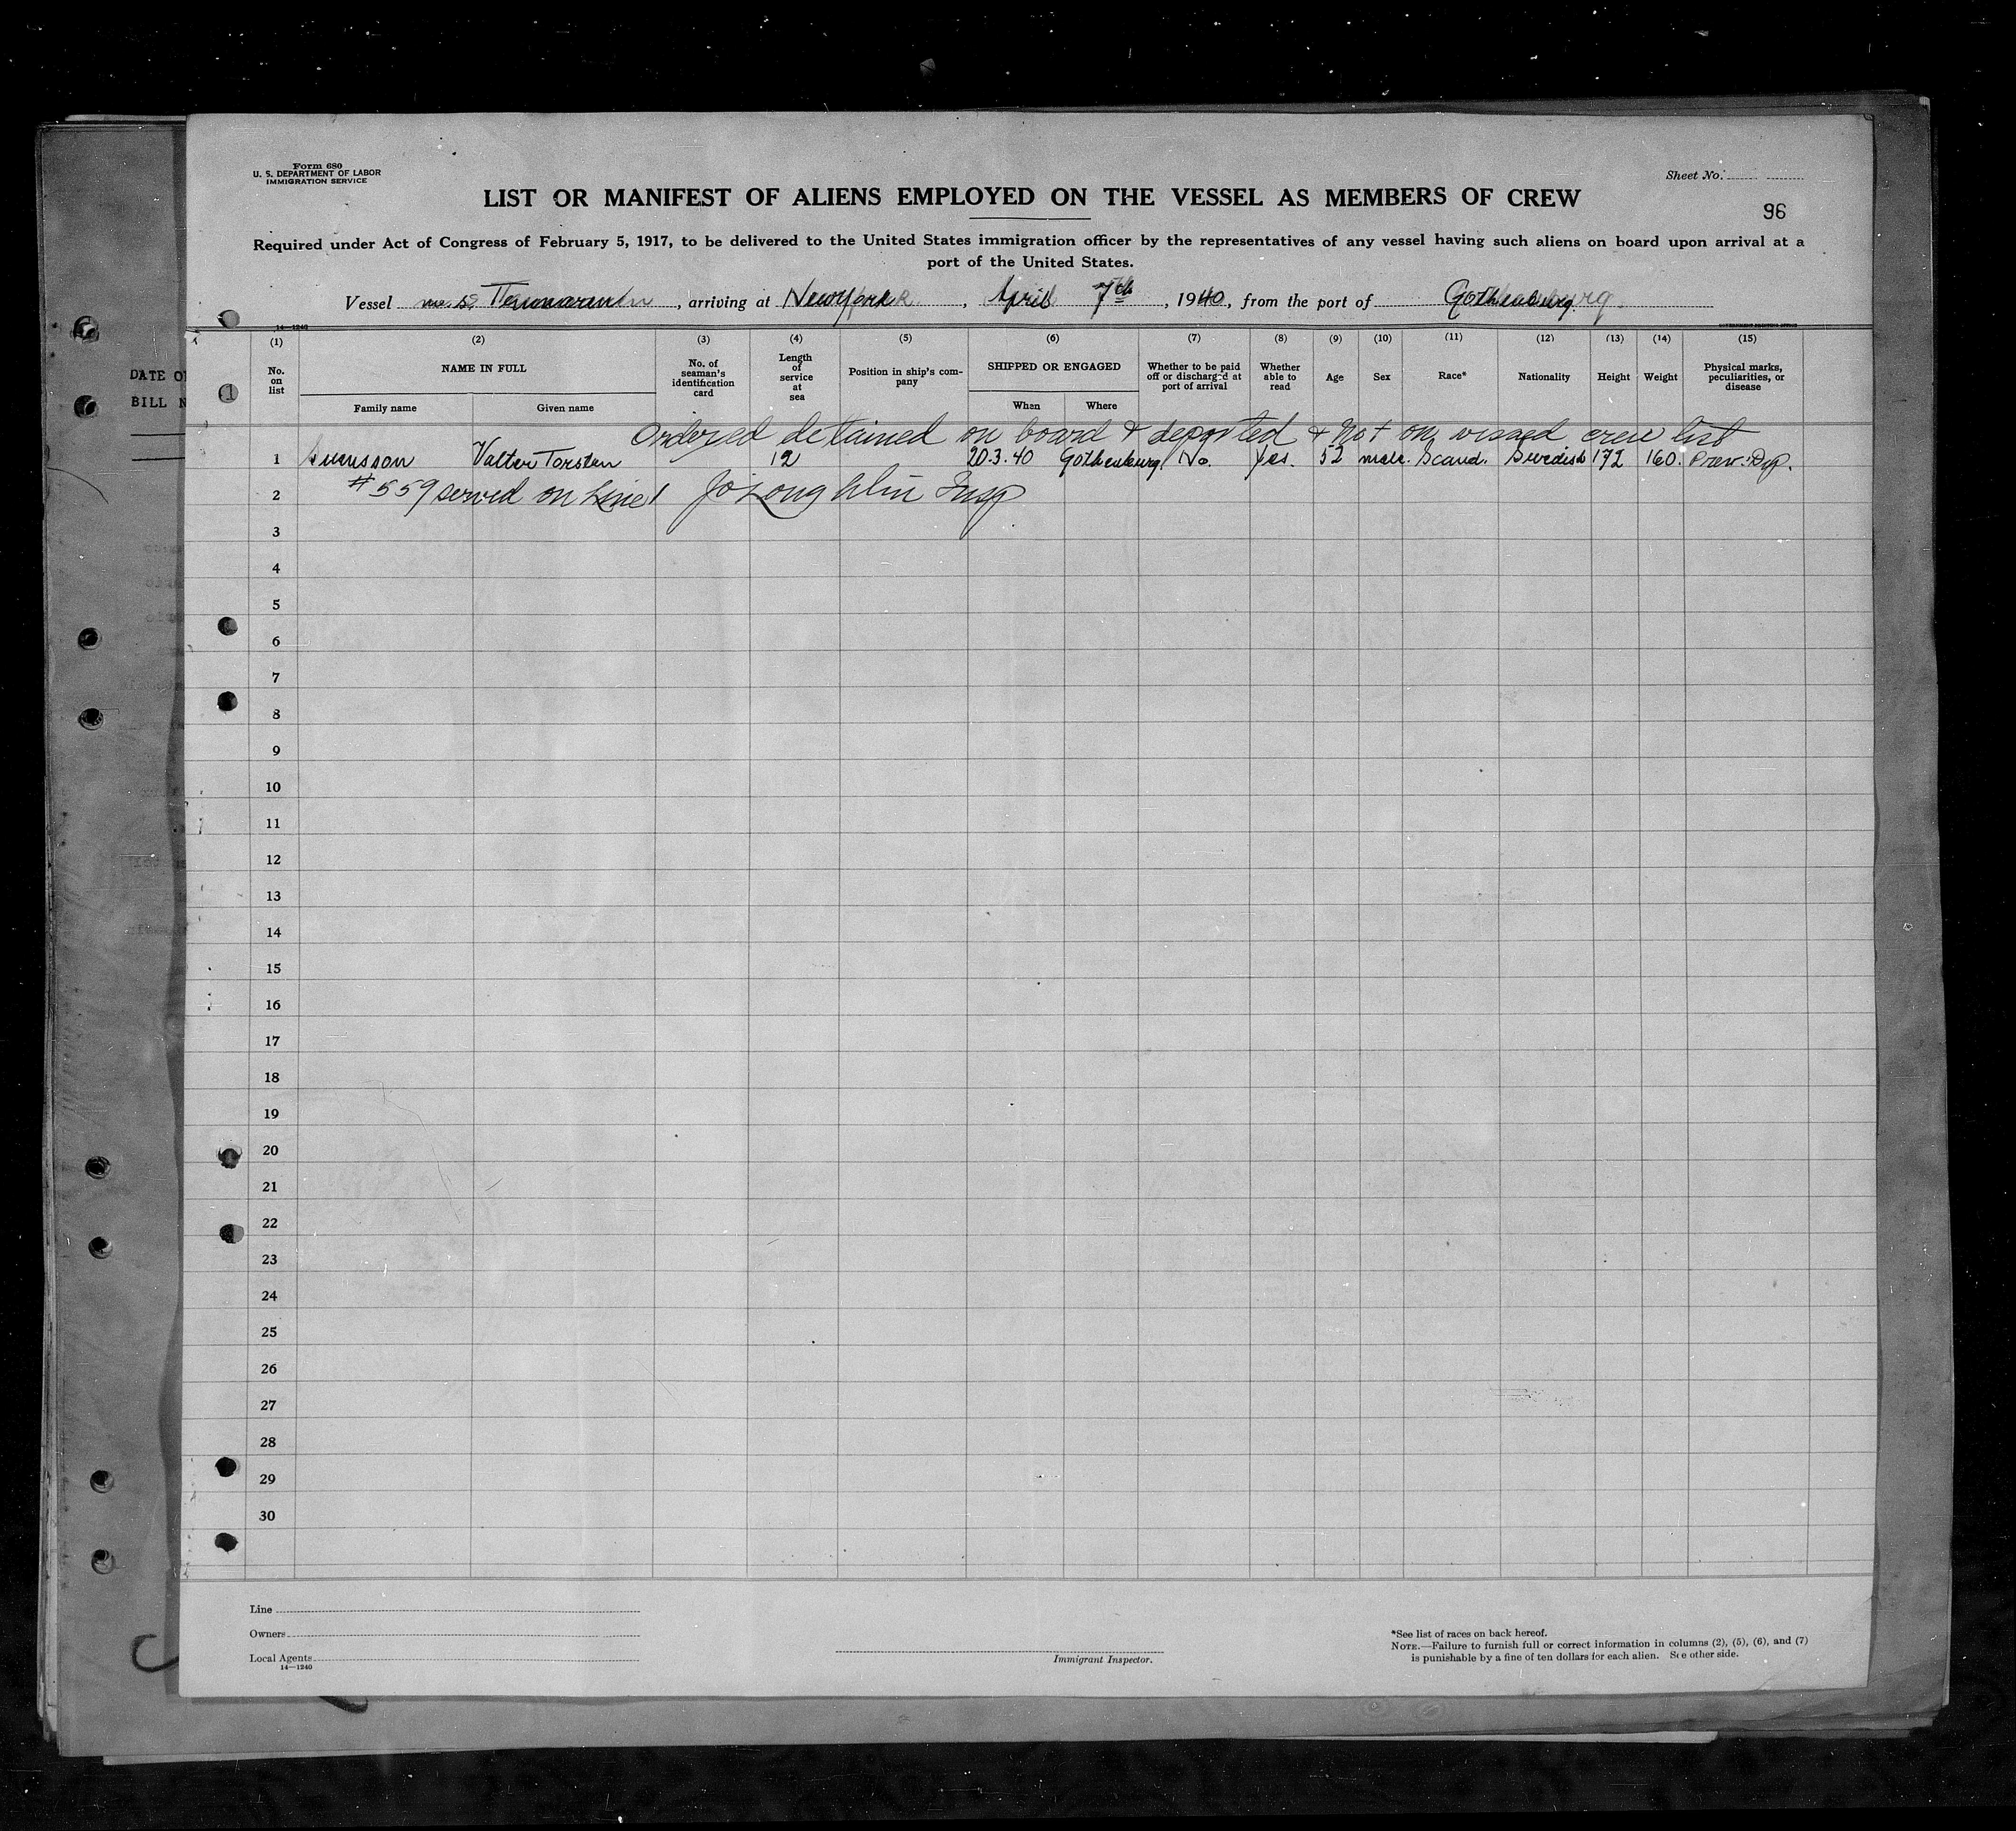 Form 680
U. S. DEPARTMENT OF LABOR
IMMIGRATION SERVICE
Sheet No.
LIST OR MANIFEST OF ALIENS EMPLOYED ON THE VESSEL AS MEMBERS OF CREW
96
Required under Act of Congress of February 5, 1917, to be delivered to the United States immigration officer by the representatives of any vessel having such aliens on board upon arrival at a
port of the United States.
Vessel m.s. , arriving at New York , April 7th , 1940, from the port of Gothenburg
14—1240
GOVERNMENT PRINTING OFFICE
DATE O
BILL N
1
(1) (2) (3) (4) (5) (6) (7) (8) (9) (10) (11) (12) (13) (14) (15)
No. on list NAME IN FULL No. of seaman's identification card Length of service at sea Position in ship's com- pany SHIPPED OR ENGAGED Whether to be paid off or discharged at port of arrival Whether able to read Age Sex Race* Nationality Height Weight Physical marks, peculiarities, or disease
Family name Given name When Where
Ordered detained on board & deported & not on vissed crew list
1 Svensson Valter Torsten 12 20.3.40 Gothenburg No. Yes. 52 male. Scand. Swedish 172 160. Prev. Dep.
2 #559 served on Line 1 Jo Loughlin Insp
3
4
5
6
7
8
9
10
11
12
13
14
15
16
17
18
19
20
21
22
23
24
25
26
27
28
29
30
Line
Owners
Local Agents
14—1240
Immigrant Inspector.
*See list of races on back hereof.
NOTE.—Failure to furnish full or correct information in columns (2), (5), (6), and (7)
is punishable by a fine of ten dollars for each alien. See other side.